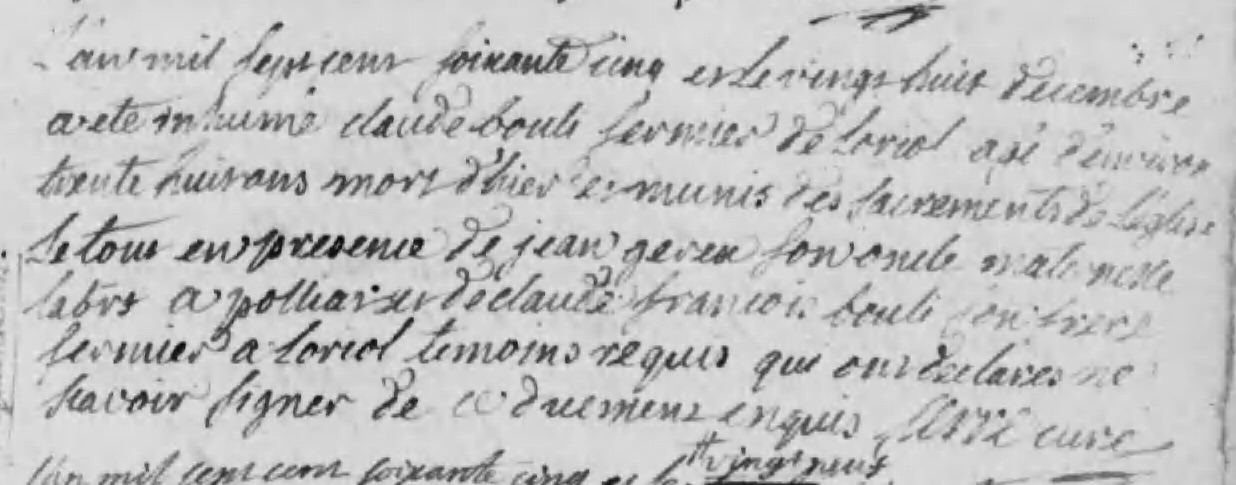 L'an mil sept cent soixante cinq et le vingt huit decembre
a eté inhumé claude bouli fermier de Loriol agé d'environ
trente huit ans mort d'hier et munis des sacrements de L'eglise
Le tout en presence de jean son oncle maternel
labrs a polliat et de claude francois bouli son frere
fermier a Loriol temoins requis qui ont declarés ne
scavoir signer de ce duement enquis curé
L'an mil sept cent soixante cinq et le vingt neuf